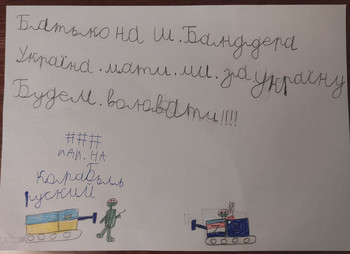 Батько на ш. Бандера
Україна. мати. ми. за україну
Будем. воювати!!!!
###
иди. на
корабль
руский